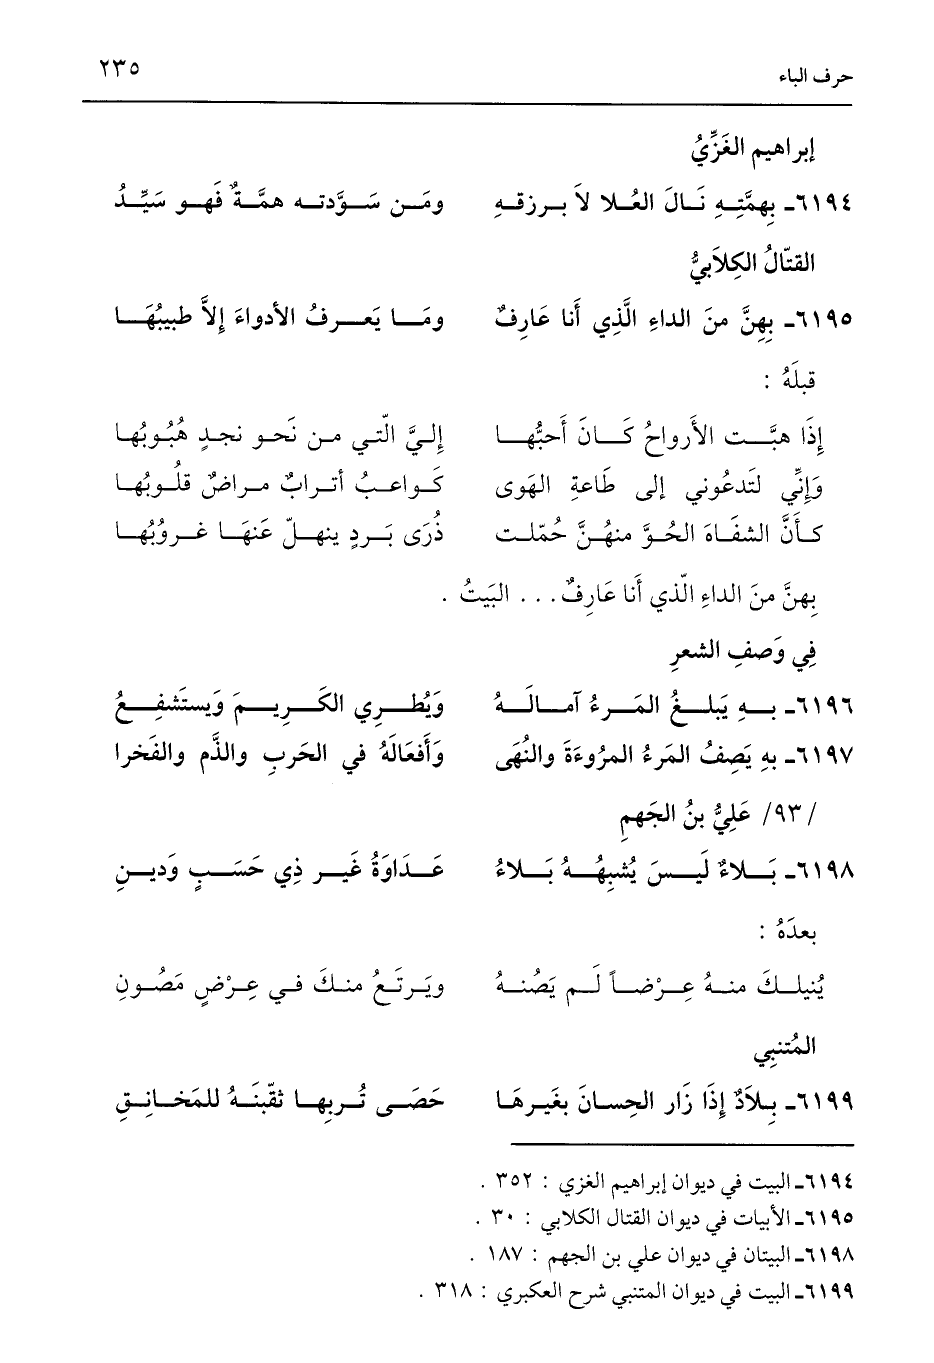 حرف الباء ٢٣٥
إبراهيم الغَزِّيُ
٦١٩٤ـ بِهمَّتِهِ نَالَ العُلا لاَ برزقهِ ومَن سَوَّدته همَّةٌ فَهو سَيِّدُ
القتّالُ الكِلاَبيُّ
٦١٩٥ـ بِهِنَّ منَ الداءِ الَّذِي أَنا عَارِفٌ ومَا يَعرفُ الأدواءَ إلاَّ طبيبُهَا
قبلَهُ :
إذَا هبَّت الأَرواحُ كَانَ أَحبُّها إليَّ الّتي من نَحو نجدٍ هُبُوبُها
وَإنِّي لَتَدعُوني إلى طَاعةِ الهَوى كَواعبُ أترابٌ مراضٌ قلُوبُها
كأَنَّ الشفَاهَ الحُوَّ منهُنَّ حُمّلت ذُرَى بَردٍ ينهلّ عَنهَا غروُبُها
بِهنَّ منَ الداءِ الّذي أَنا عَارِفٌ... البَيتُ .
فِي وَصفِ الشعرِ
٦١٩٦ـ بهِ يَبلغُ المَرءُ آمالَهُ وَيُطرِي الكَرِيمَ وَيستَشفِعُ
٦١٩٧ـ بهِ يَصِفُ المَرءُ المرُوءَةَ والنُهَى وَأَفعَالَهُ في الحَربِ والذَّم والفَخرا
/٩٣/ عَلِيُّ بنُ الجَهمِ
٦١٩٨ـ بَلاءٌ لَيسَ يُشبِهُهُ بَلاءُ عَدَاوَةُ غَير ذِي حَسَبٍ وَدينِ
بعدَهُ :
يُنيلكَ منهُ عِرْضاً لَم يَصُنهُ ويَرتَعُ منكَ في عِرْضٍ مَصُونِ
المُتنبِي
٦١٩٩ـ بِلاَدٌ إذَا زَار الحِسانَ بغَيرهَا حَصَى تُربِها ثقّبنَهُ للمَخانِقِ
٦١٩٤ـ البيت في ديوان إبراهيم الغزي : ٣٥٢ .
٦١٩٥ـ الأبيات في ديوان القتال الكلابي : ٣٠ .
٦١٩٨ـ البيتان في ديوان علي بن الجهم : ١٨٧ .
٦١٩٩ـ البيت في ديوان المتنبي شرح العكبري : ٣١٨ .